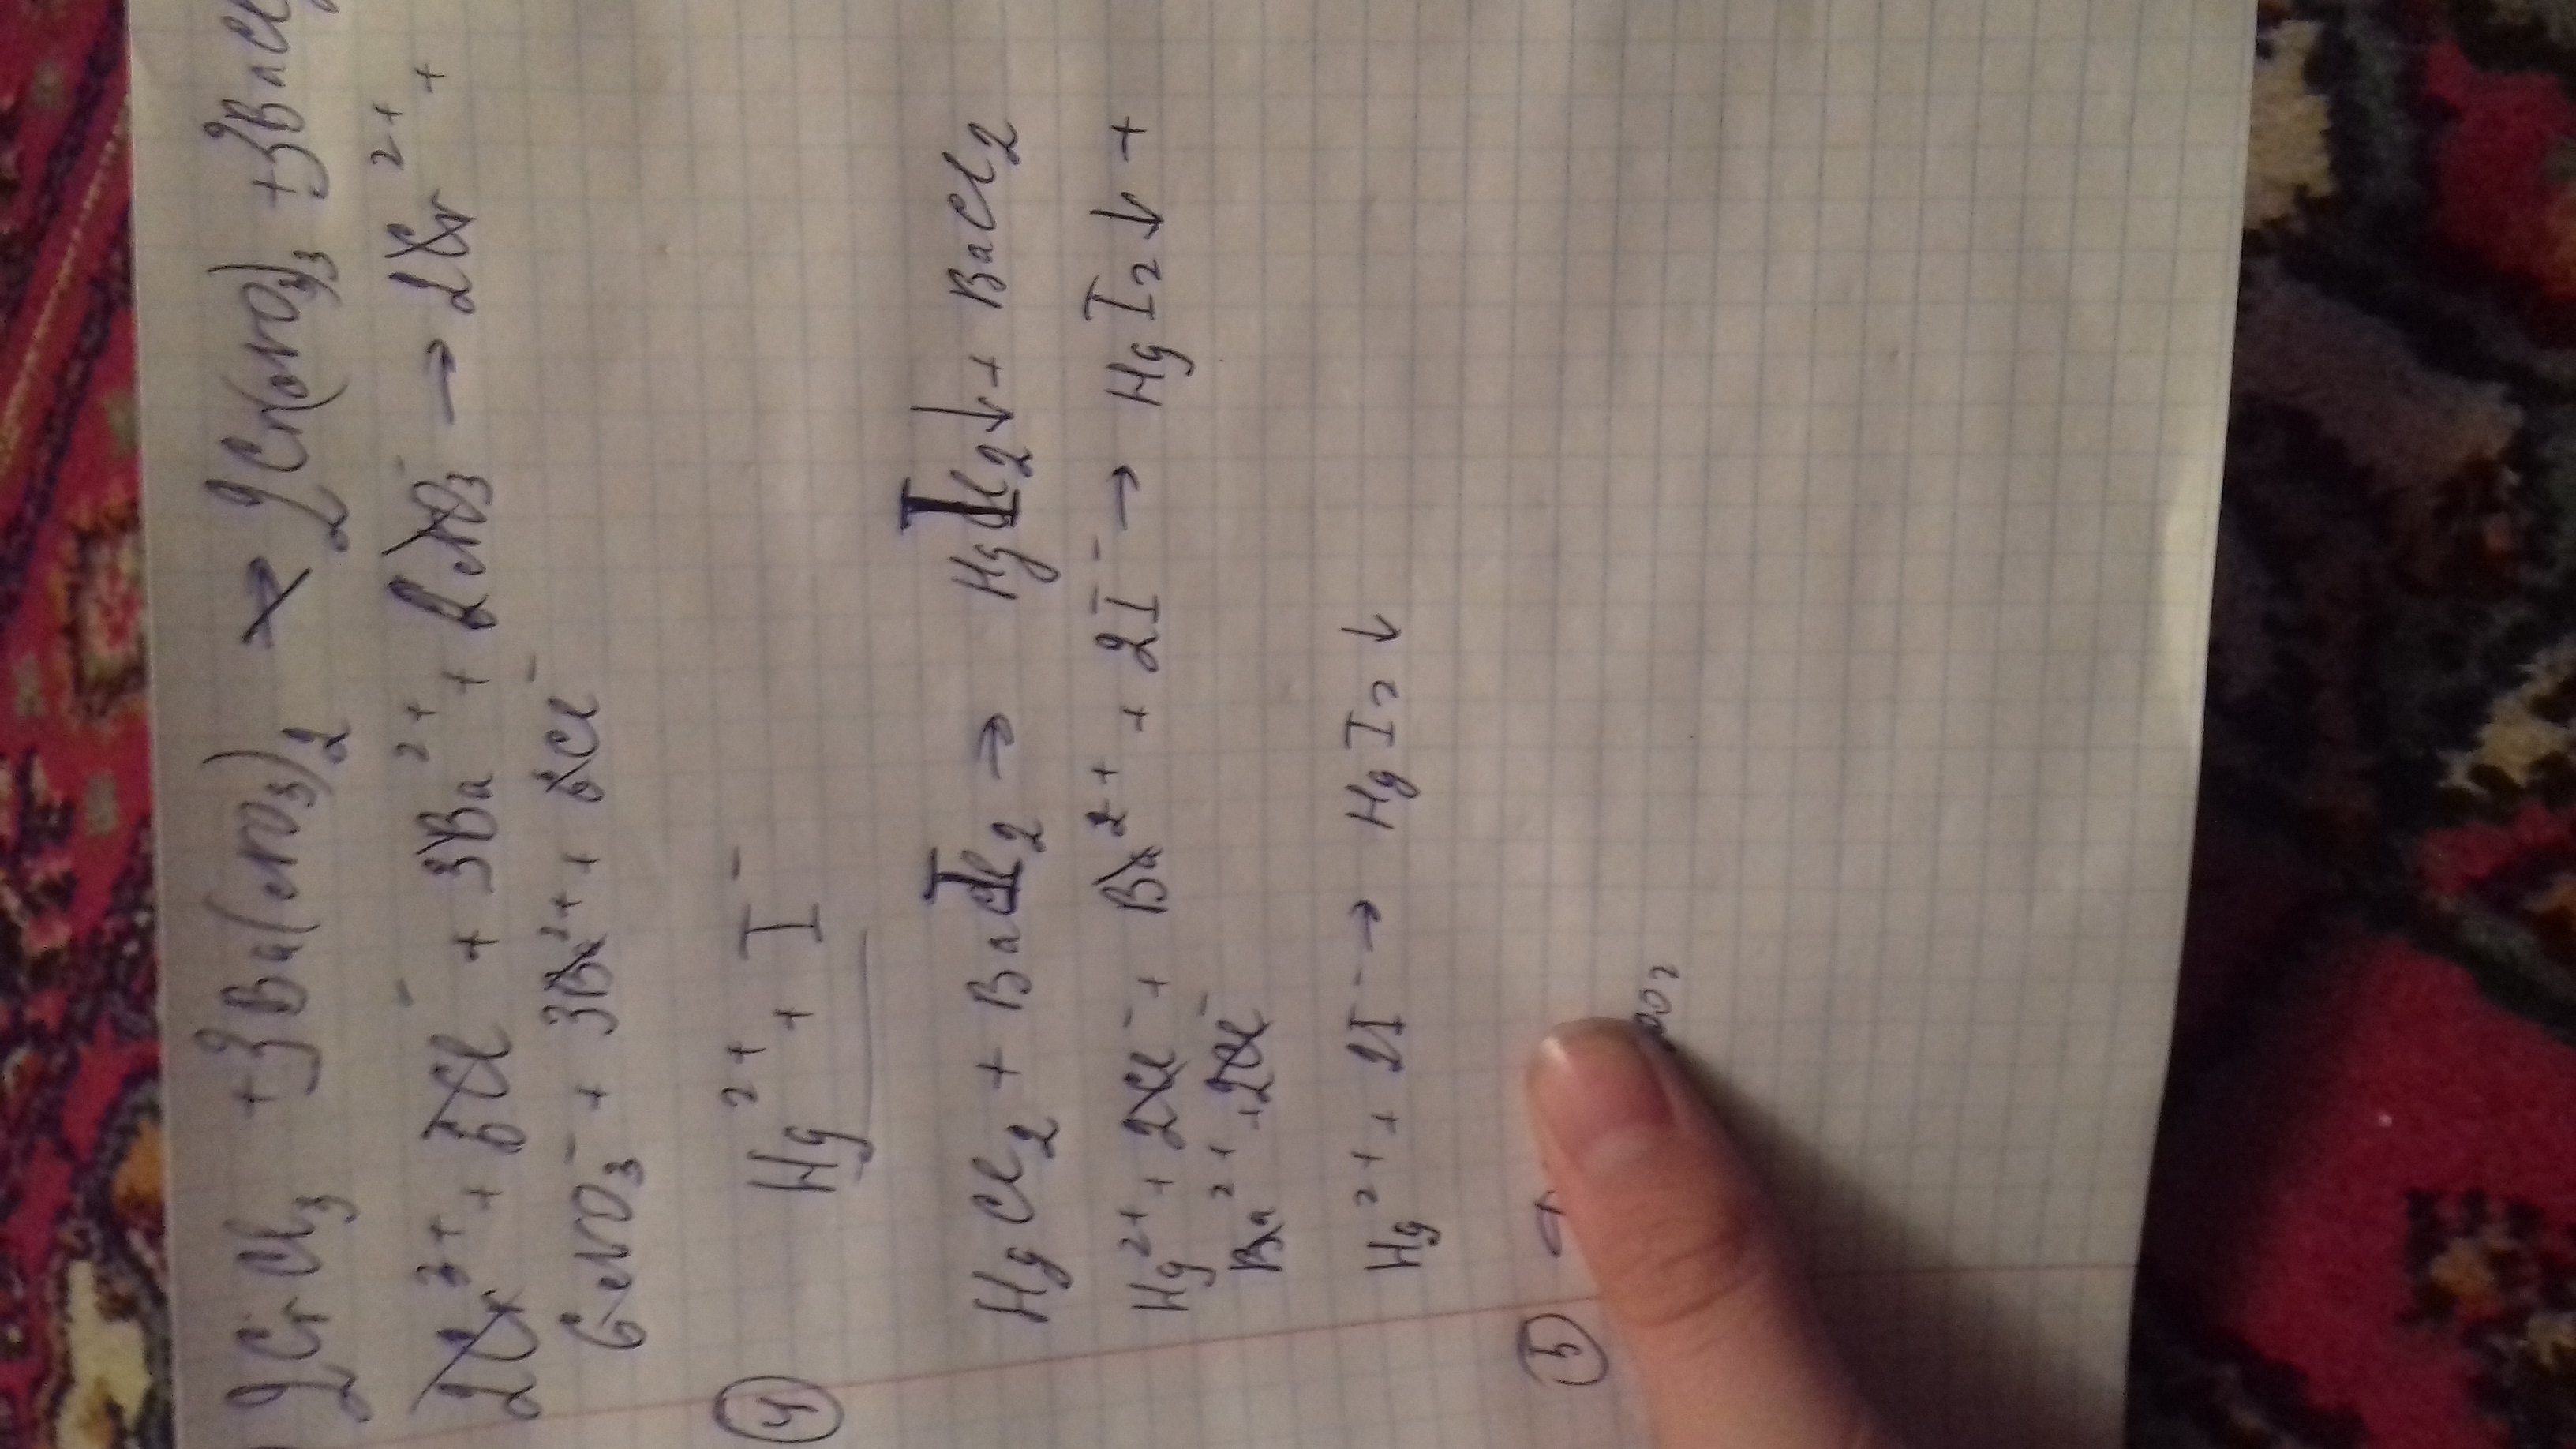 2CrCl₃ + 3Ba(NO₃)₂ → 2Cr(NO₃)₃ + 3BaCl
2Cr³⁺ + 6Cl⁻ + 3Ba²⁺ + 6NO₃⁻ → 2Cr²⁺ +
6NO₃⁻ + 3Ba²⁺ + 6Cl⁻
④ Hg²⁺ + I⁻
HgCl₂ + BaI₂ → HgI₂↓ + BaCl₂
Hg²⁺ + 2Cl⁻ + Ba²⁺ + 2I⁻ → HgI₂↓ +
Ba²⁺ + 2Cl⁻
Hg²⁺ + 2I⁻ → HgI₂↓
⑤